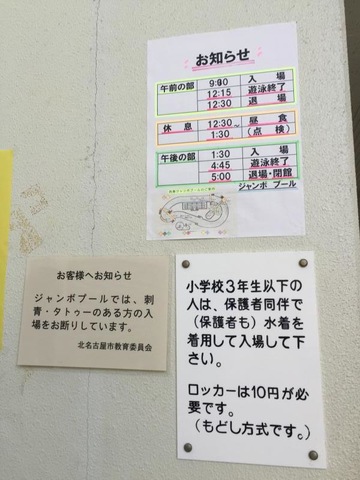 お知らせ
午前の部 9:00 入場
12:15 遊泳終了
12:30 退場
休息 12:30~ 昼食
1:30 (点検)
午後の部 1:30 入場
4:45 遊泳終了
5:00 退場・閉館
ジャンボプール
お客様へお知らせ
ジャンボプールでは、刺
青・タトゥーのある方の入
場をお断りしています。
北名古屋市教育委員会
小学校3年生以下の
人は、保護者同伴で
(保護者も)水着を
着用して入場して下
さい。
ロッカーは10円が必
要です。
(もどし方式です。)